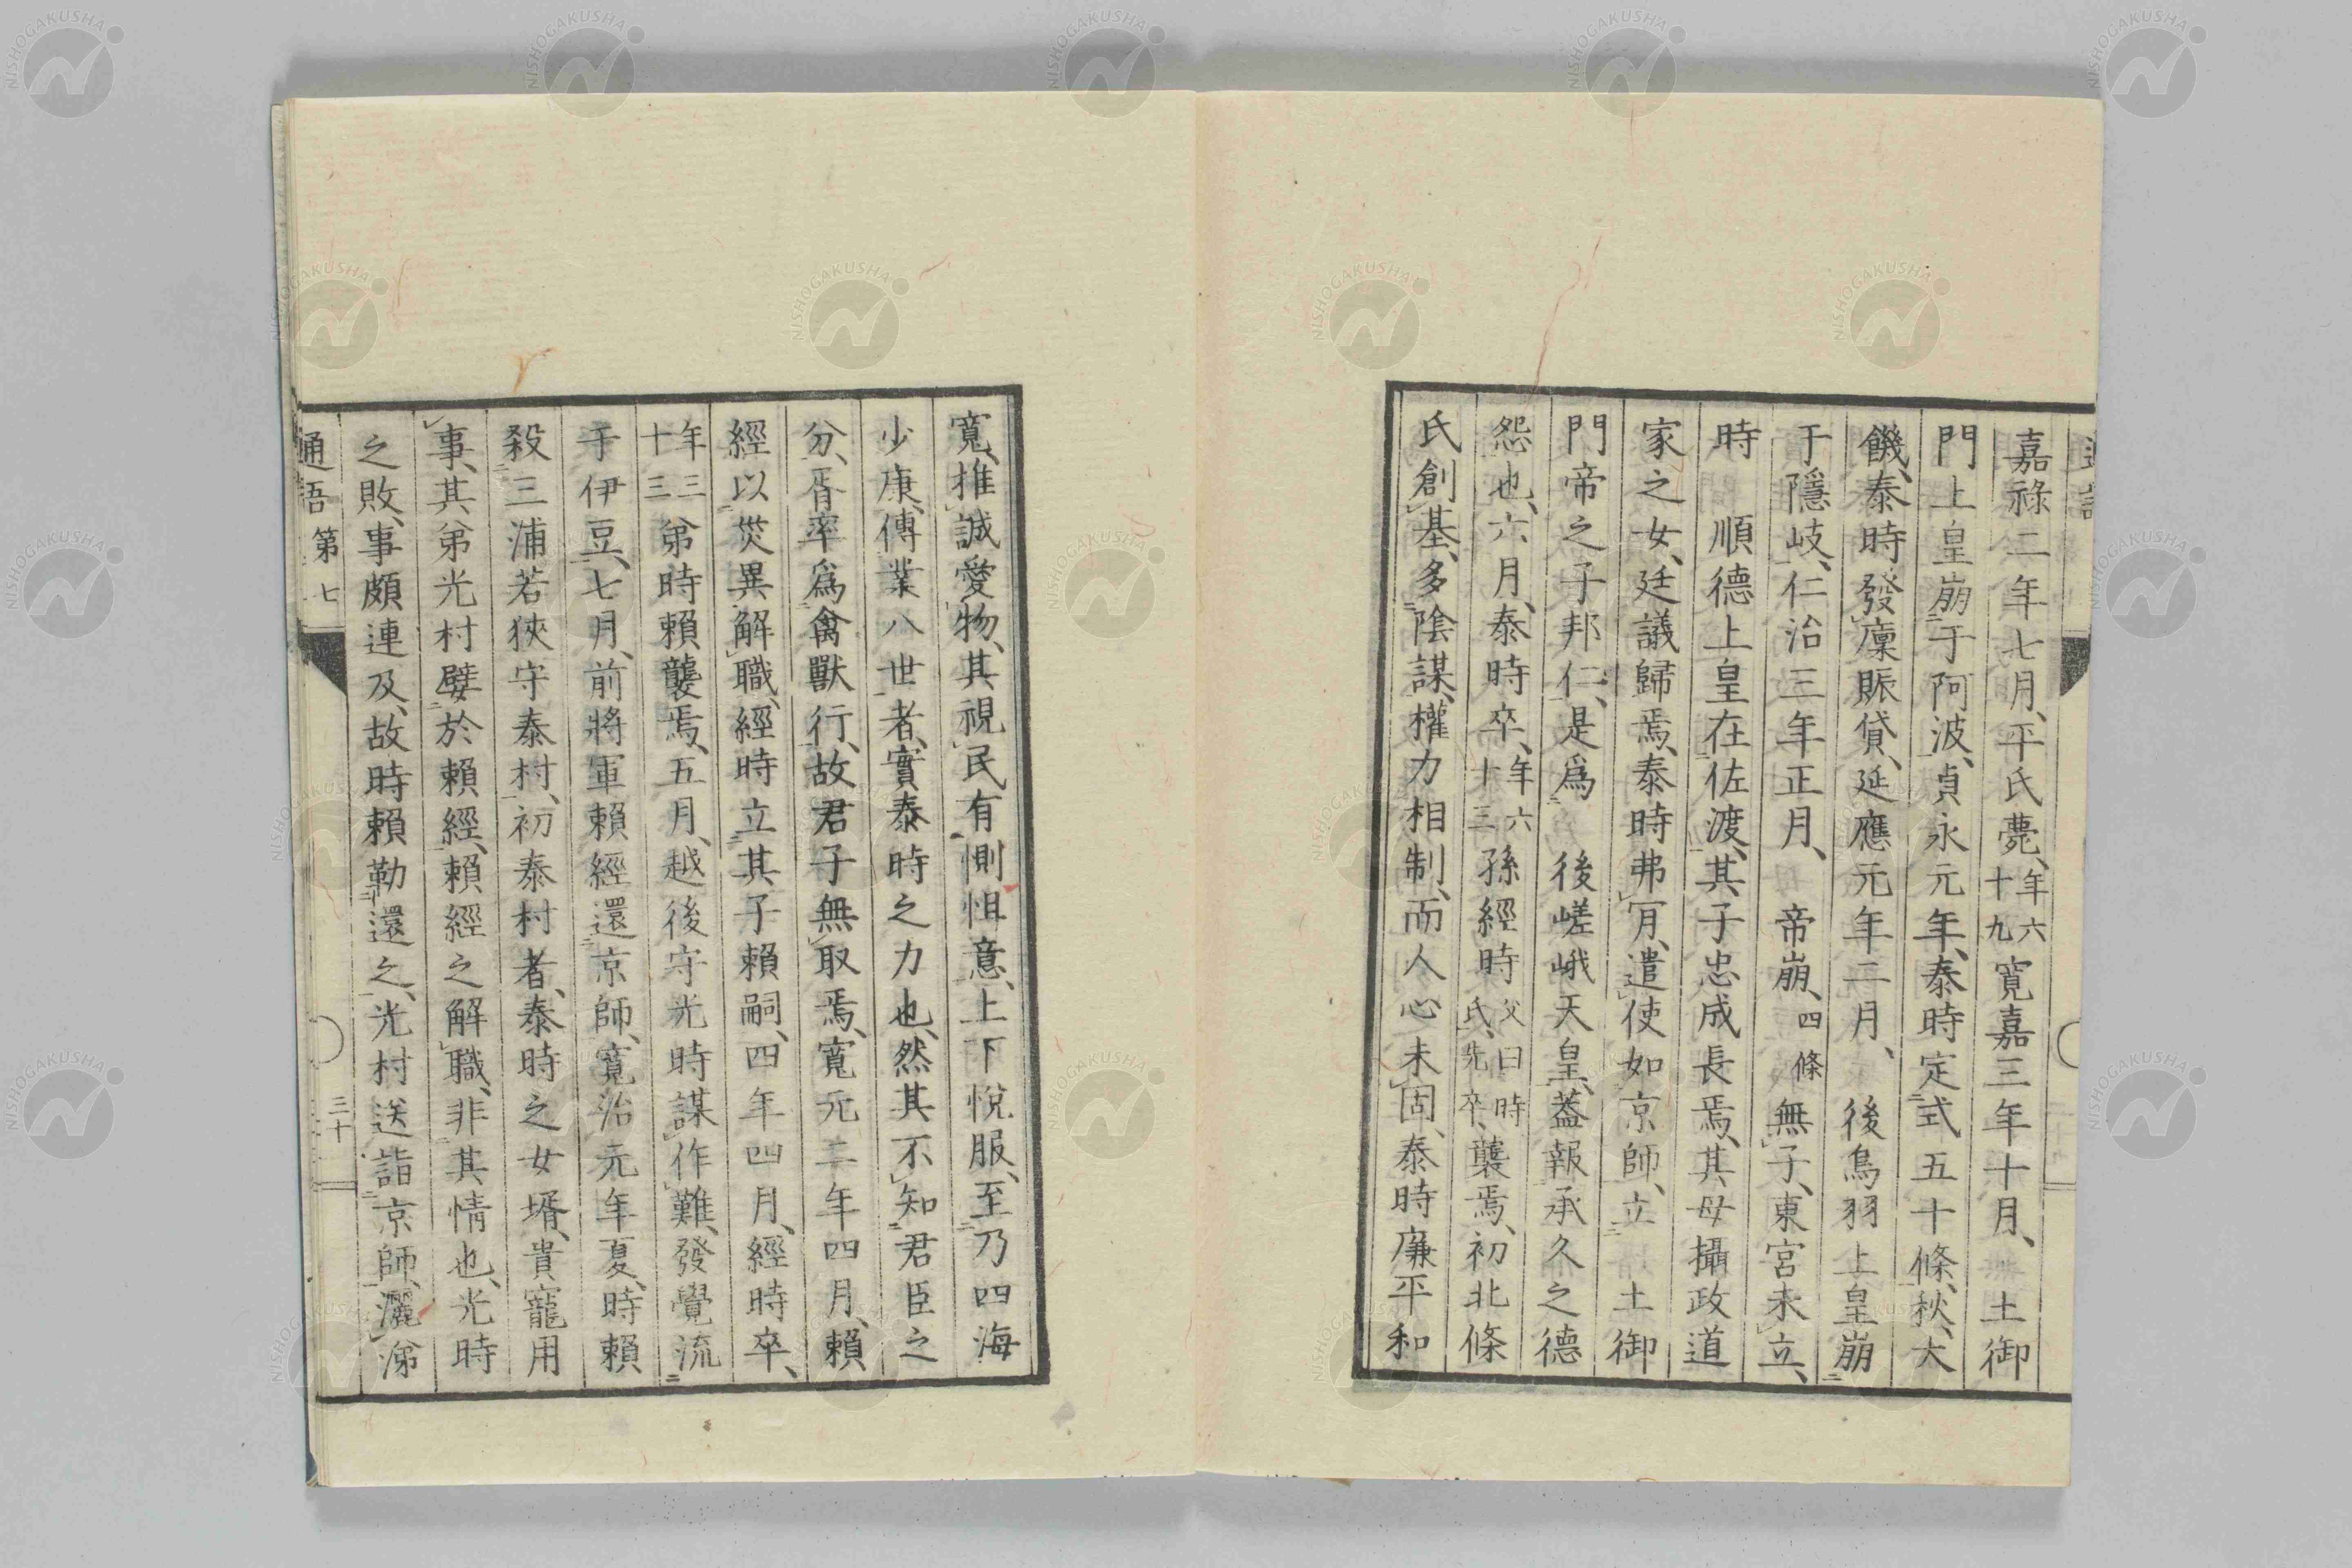 嘉祿二年七月、平氏薨、年六十九寬嘉三年十月、土御
門上皇崩于阿波、貞永元年、泰時定式五十條、秋、大
饑、泰時發廩賑貸、延應元年二月、後鳥羽上皇崩
于隱岐、仁治三年正月、帝崩、四條無子、東宮未立、
時順德上皇在佐渡、其子忠成長焉、其母攝政道
家之女、廷議歸焉、泰時弗肎、遣使如京師、立土御
門帝之子邦仁、是爲後嵯峨天皇、蓋報承久之德
怨也、六月、泰時卒、年六十三孫經時父曰時氏、先卒、襲焉、初北條
氏創基、多陰謀、權力相制、而人心未固、泰時廉平和
寬、推誠愛物、其視民有惻怛意、上下悅服、至乃四海
少康、傳業八世者、實泰時之力也、然其不知君臣之
分、胥率爲禽獸行、故君子無取焉、寬元二年四月、賴
經以災異解職、經時立其子賴嗣、四年四月、經時卒、
年三十三弟時賴襲焉、五月、越後守光時謀作難、發覺流
于伊豆、七月、前將軍賴經還京師、寬治元年夏、時賴
殺三浦若狹守泰村、初泰村者、泰時之女壻、貴寵用
事、其弟光村嬖於賴經、賴經之解職、非其情也、光時
之敗、事頗連及、故時賴勒還之、光村送詣京師、灑涕
通語 第七
NISHOGAKUSHA